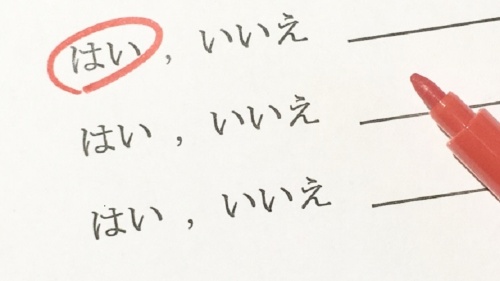 はい，いいえ
はい，いいえ
はい，いいえ